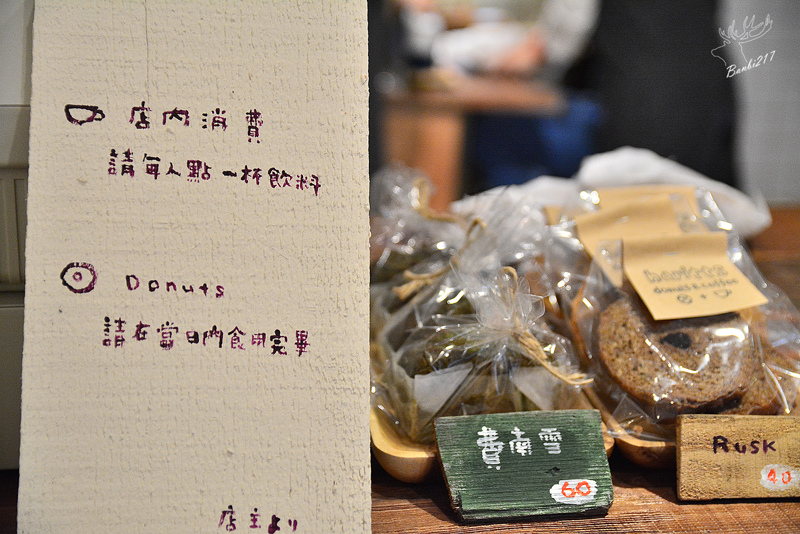 店內消費
請每人點一杯飲料
Donuts
請在當日內食用完畢
店主より
Bambi217
donut & coffee
費南雪
60
Rusk
40